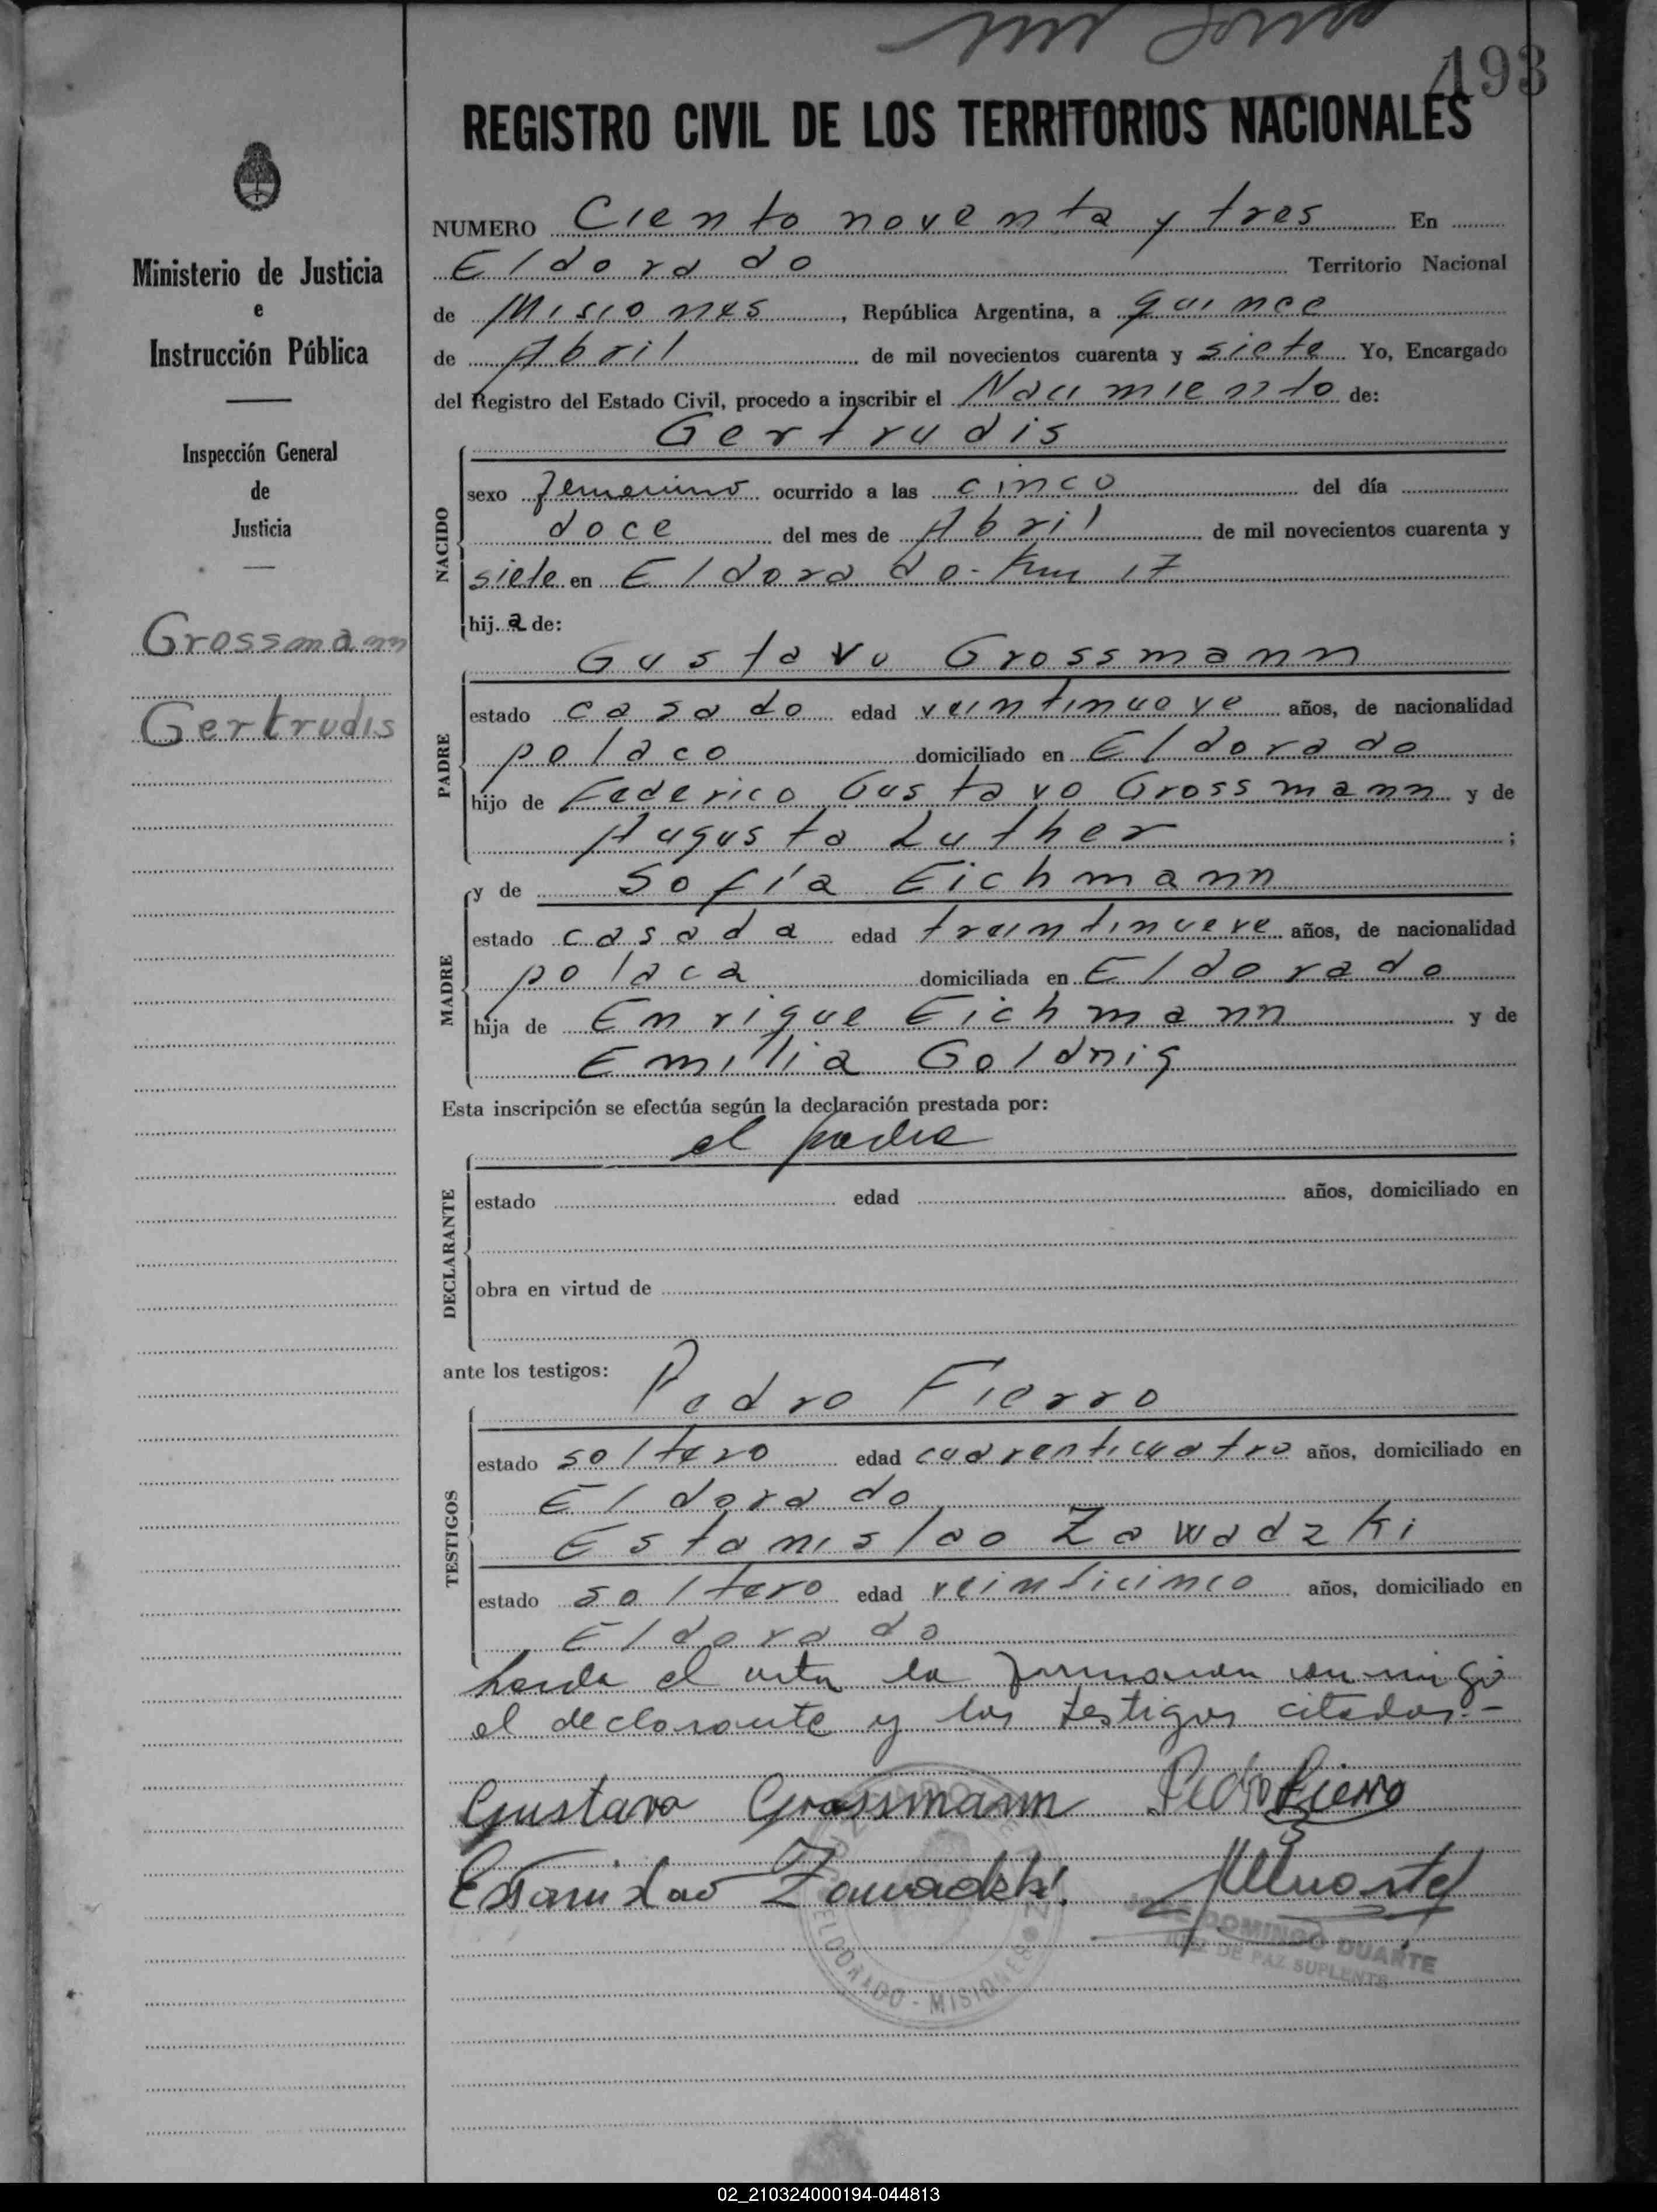 193
REGISTRO CIVIL DE LOS TERRITORIOS NACIONALES
Ministerio de Justicia
e
Instrucción Pública
Inspección General
de
Justicia
Grossmann
Gertrudis
NUMERO Ciento noventa y tres En
Eldorado Territorio Nacional
de Misiones, República Argentina, a quince
de Abril de mil novecientos cuarenta y siete Yo, Encargado
del Registro del Estado Civil, procedo a inscribir el Nacimiento de:
Gertrudis
NACIDO
sexo femenino ocurrido a las cinco del día
doce del mes de Abril de mil novecientos cuarenta y
siete en Eldorado - Km 17
hija de:
Gustavo Grossmann
PADRE
estado casado edad veintinueve años, de nacionalidad
polaco domiciliado en Eldorado
hijo de Federico Gustavo Grossmann y de
Augusta Luther ;
y de Sofía Eichmann
MADRE
estado casada edad treintinueve años, de nacionalidad
polaca domiciliada en Eldorado
hija de Enrique Eichmann y de
Emilia Goldnig
Esta inscripción se efectúa según la declaración prestada por:
el padre
DECLARANTE
estado edad años, domiciliado en
obra en virtud de
ante los testigos:
Pedro Fierro
TESTIGOS
estado soltero edad cuarenticuatro años, domiciliado en
Eldorado
Estanislao Zawadzki
estado soltero edad veinticinco años, domiciliado en
Eldorado
el acta la
el declarante y los testigos citados.-
Gustavo Grossmann Pedro Fierro
Estanislao Zawadzki
ELDORADO - MISIONES
DOMINGO DUARTE
JUEZ DE PAZ SUPLENTE
02_210324000194-044813